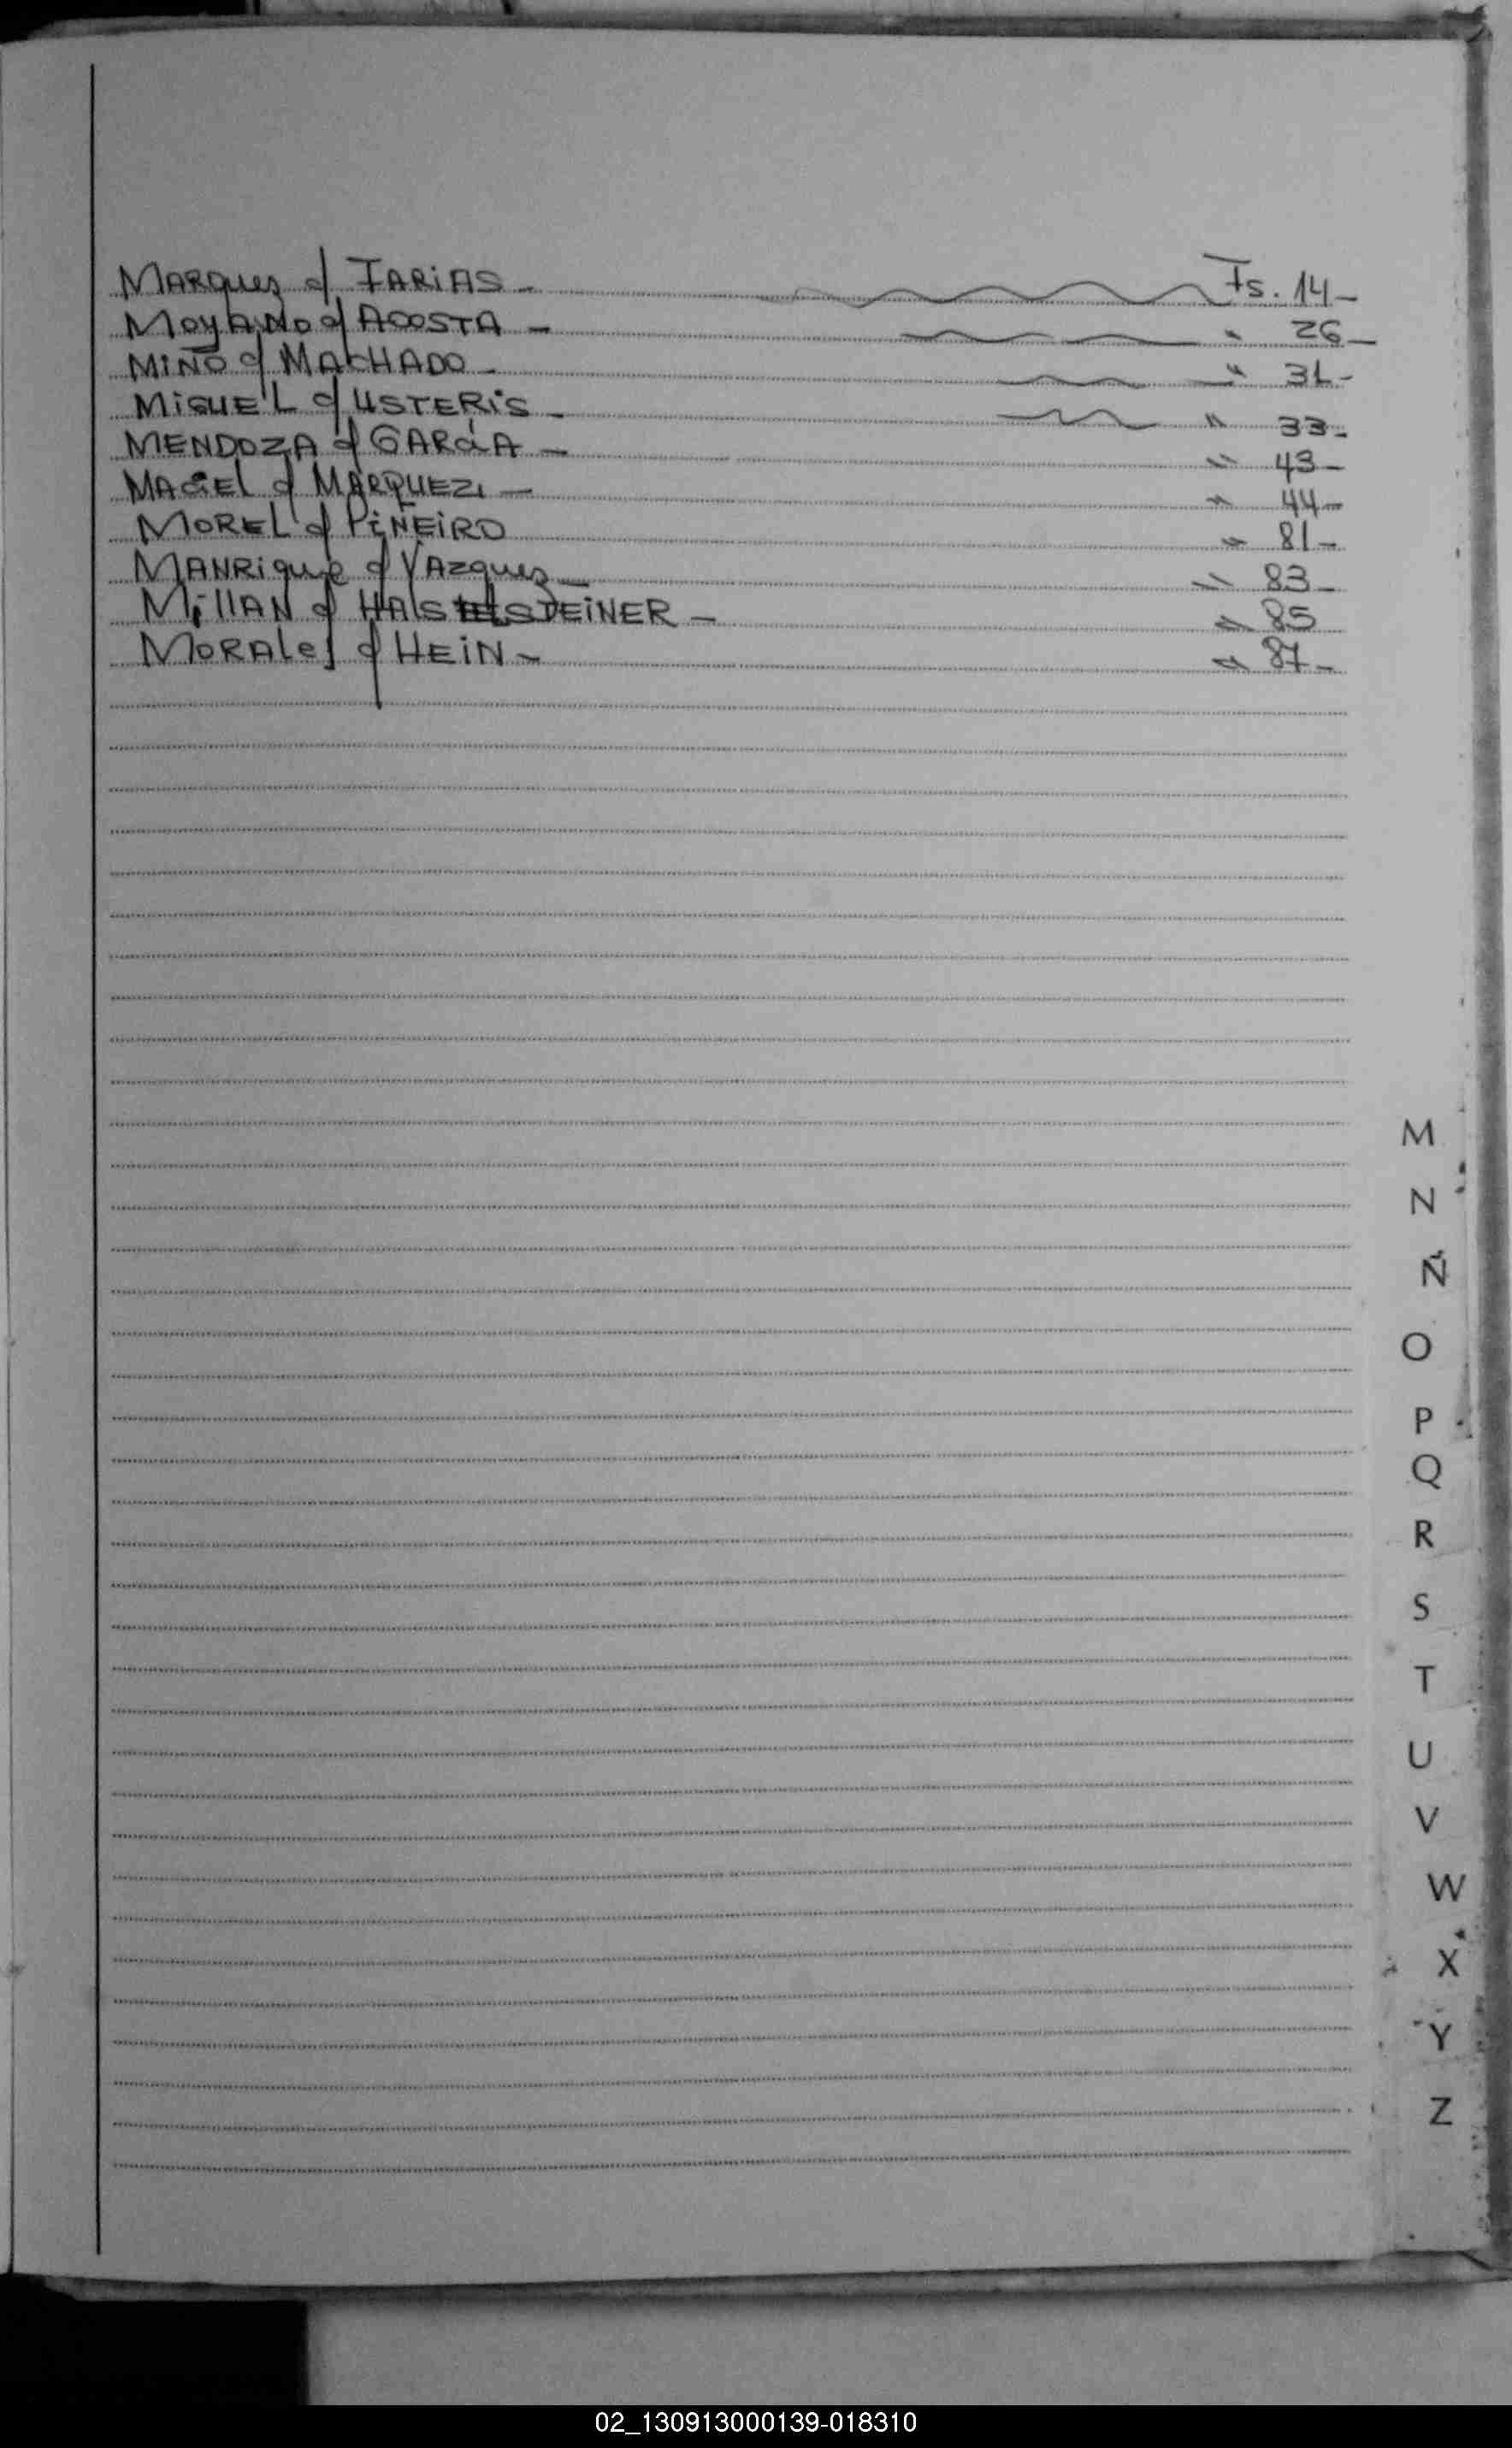 MARQUEZ c/ FARIAS - Fs. 14-
MOYANO c/ ACOSTA - " 26-
MIÑO c/ MACHADO - " 31-
MIGUEL c/ USTERIS - " 33-
MENDOZA c/ GARCIA - " 43-
MACIEL c/ MARQUEZ - " 44-
MOREL c/ PIÑEIRO " 81-
MANRIQUE c/ VAZQUEZ - " 83-
MILLAN c/ HALSTEINER - " 85
MORALES c/ HEIN - " 87-
M
N
Ñ
O
P
Q
R
S
T
U
V
W
X
Y
Z
02_130913000139-018310